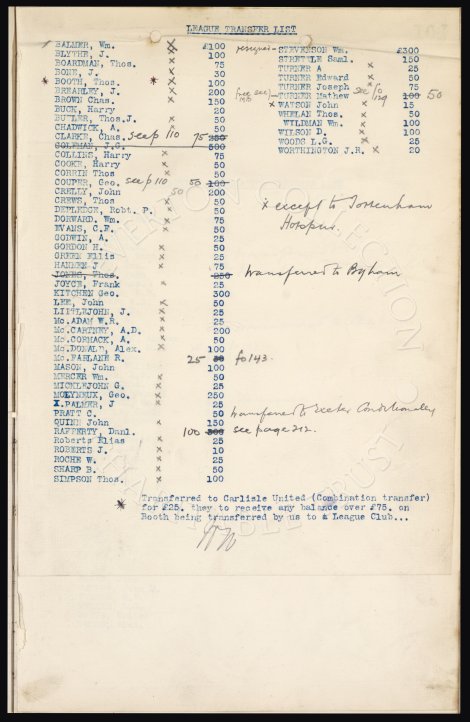 LEAGUE TRANSFER LIST
BALMER, Wm. x £100
BLYTHE, J. x 100
BOARDMAN, Thos. 75
BONE, J. x 30
* BOOTH, Thos. x 100
BREARLEY, J. x 200
BROWN Chas. x 150
BUCK, Harry 20
BUTLER, Thos.J. x 50
CHADWICK, A. x 50
CLARKE, Chas. see p 110 75 250
COLEMAN, J.G. 500
COLLINS, Harry x 75
COOKE, Harry x 50
CORRIN Thos 50
COUPER, Geo. see p 110 50 100
CRELLY, John 50 200
CREWS, Thos x 50
DEPLEDGE, Robt. P. 50
DORWARD. Wm. x 75
EVANS, C.F. x 50
GODWIN, A. 25
GORDON H. x 50
GREEN Ellis x 25
HANNEN J x 75
JONES, Thos. 250 transferred to
JOYCE, Frank x 25
KITCHEN Geo. 300
LEE, John x 50
LITTLEJOHN, J. x 25
Mc.ADAM W.R. x 25
Mc.CARTNEY, A.D. x 200
Mc.CORMACK, A. x 50
Mc.DONALD, Alex. x 100
Mc.FARLANE R. 25 fo 143.
MASON, John 100
MERCER Wm. x 50
MICKLEJOHN G. x 25
MOLYNEUX, Geo. x 250
PALMER, J x 25
PRATT C. 50
QUINN John x 150
RAFFERTY, Danl. 100 300
transferred to Exeter Conditionally
see page 212.
Roberts Elias x 25
ROBERTS J. x 10
ROCHE W. x 25
SHARP B. x 50
SIMPSON Thos. x 100
resigned - STEVENSON Wm. £300
STRETTLE Saml. 150
TURNER A 25
TURNER Edward x 50
TURNER Joseph x 75
TURNER Mathew see fo 129 100 50
x WATSON John x 15
WHELAN Thos. x 50
WILDMAN Wm. 100
WILSON D. x 100
WOODS L.G. x 25
WORTHINGTON J.R. x 20
x except to Tottenham
Hotspur
* Transferred to Carlisle United (Combination transfer)
for £25. they to receive any balance over £75. on
Booth being transferred by us to a League Club...